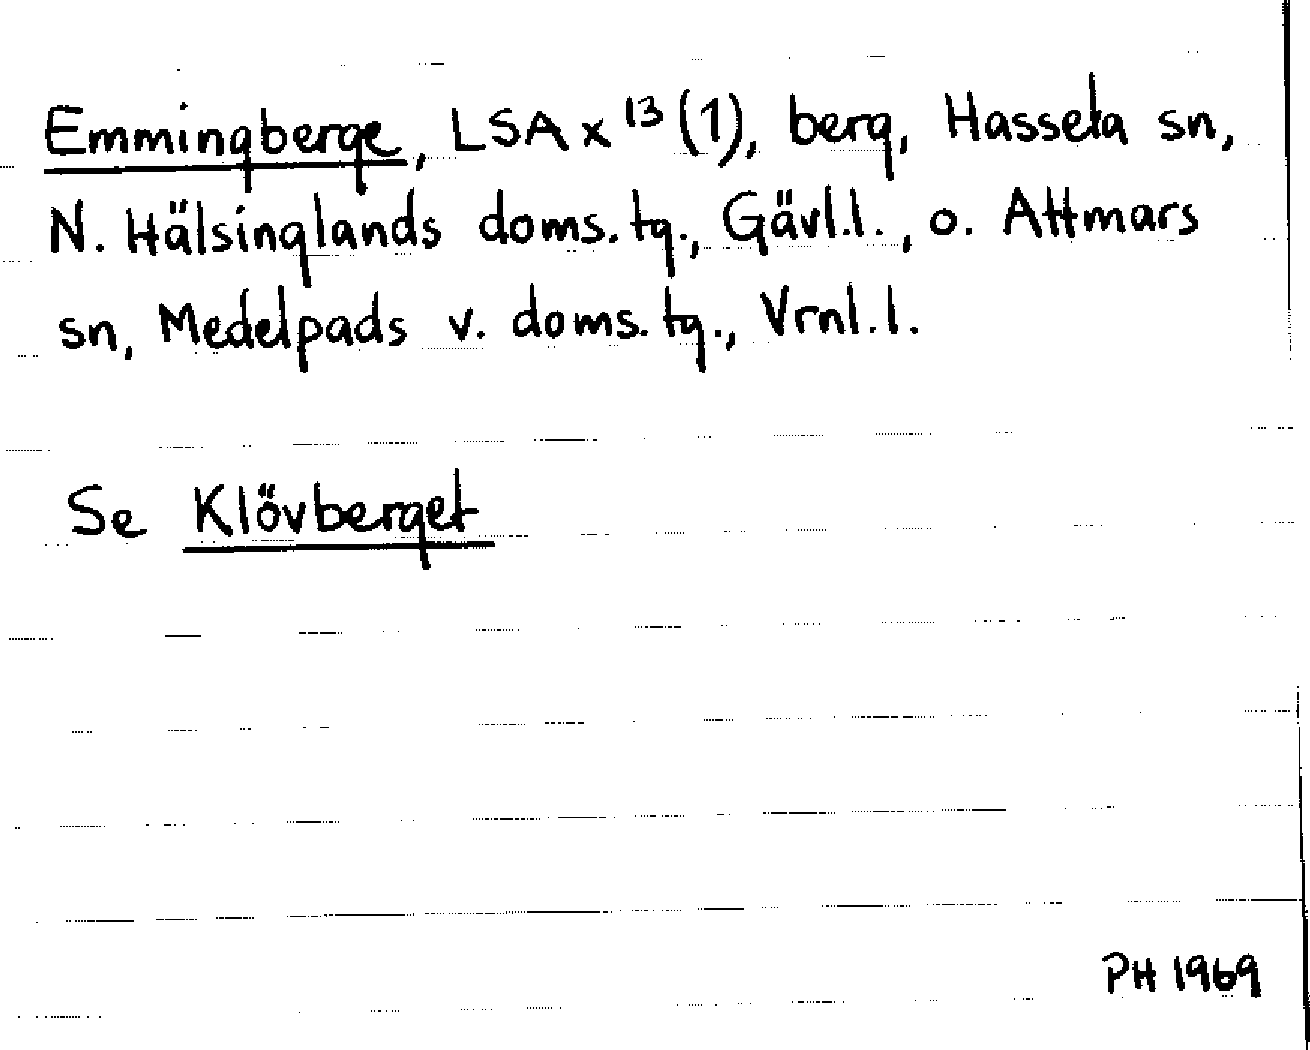 Emmingberge, LSA x 13 (1), berg, Hassela sn,
N. Hälsinglands doms.tg., Gävl.l., o. Attmars
sn, Medelpads v. doms.tg., Vrnl.l.
Se Klövberget
PH 1969